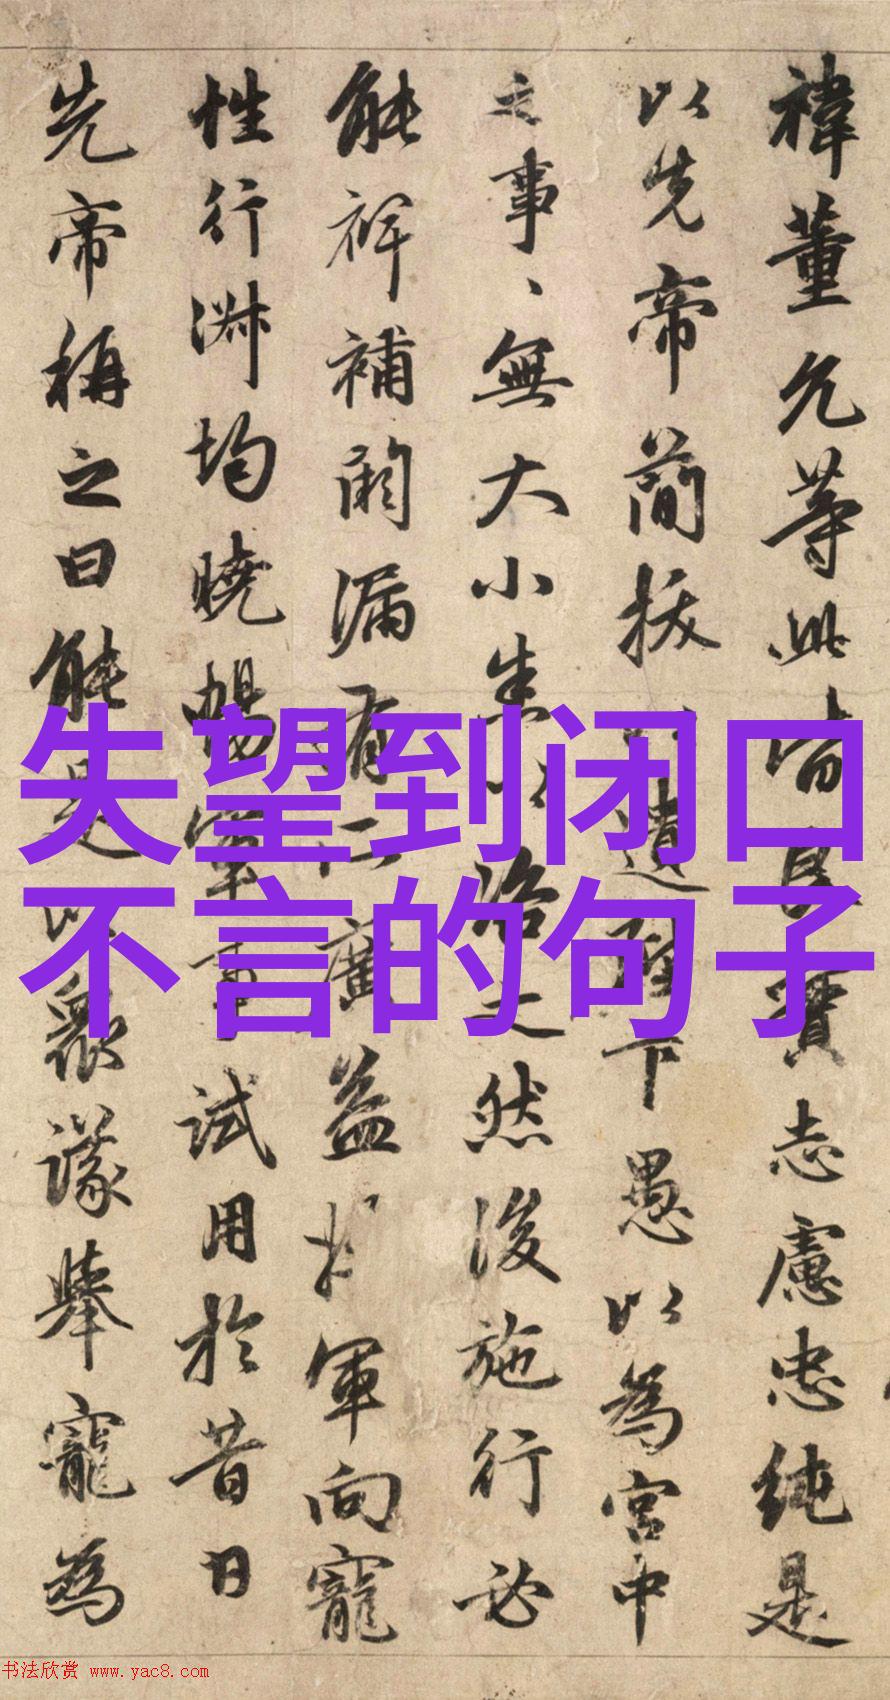 禕董允等此皆良實志慮忠純是
以先帝簡拔以遺陛下愚以為宮中
之事、無大小悉以咨之然後施行必
能裨補闕漏有所廣益將軍向寵
性行淑均曉暢軍事試用於昔日
先帝稱之曰能是以眾議舉寵為
失望到闭口
不言的句子
书法欣赏 www.yac8.com